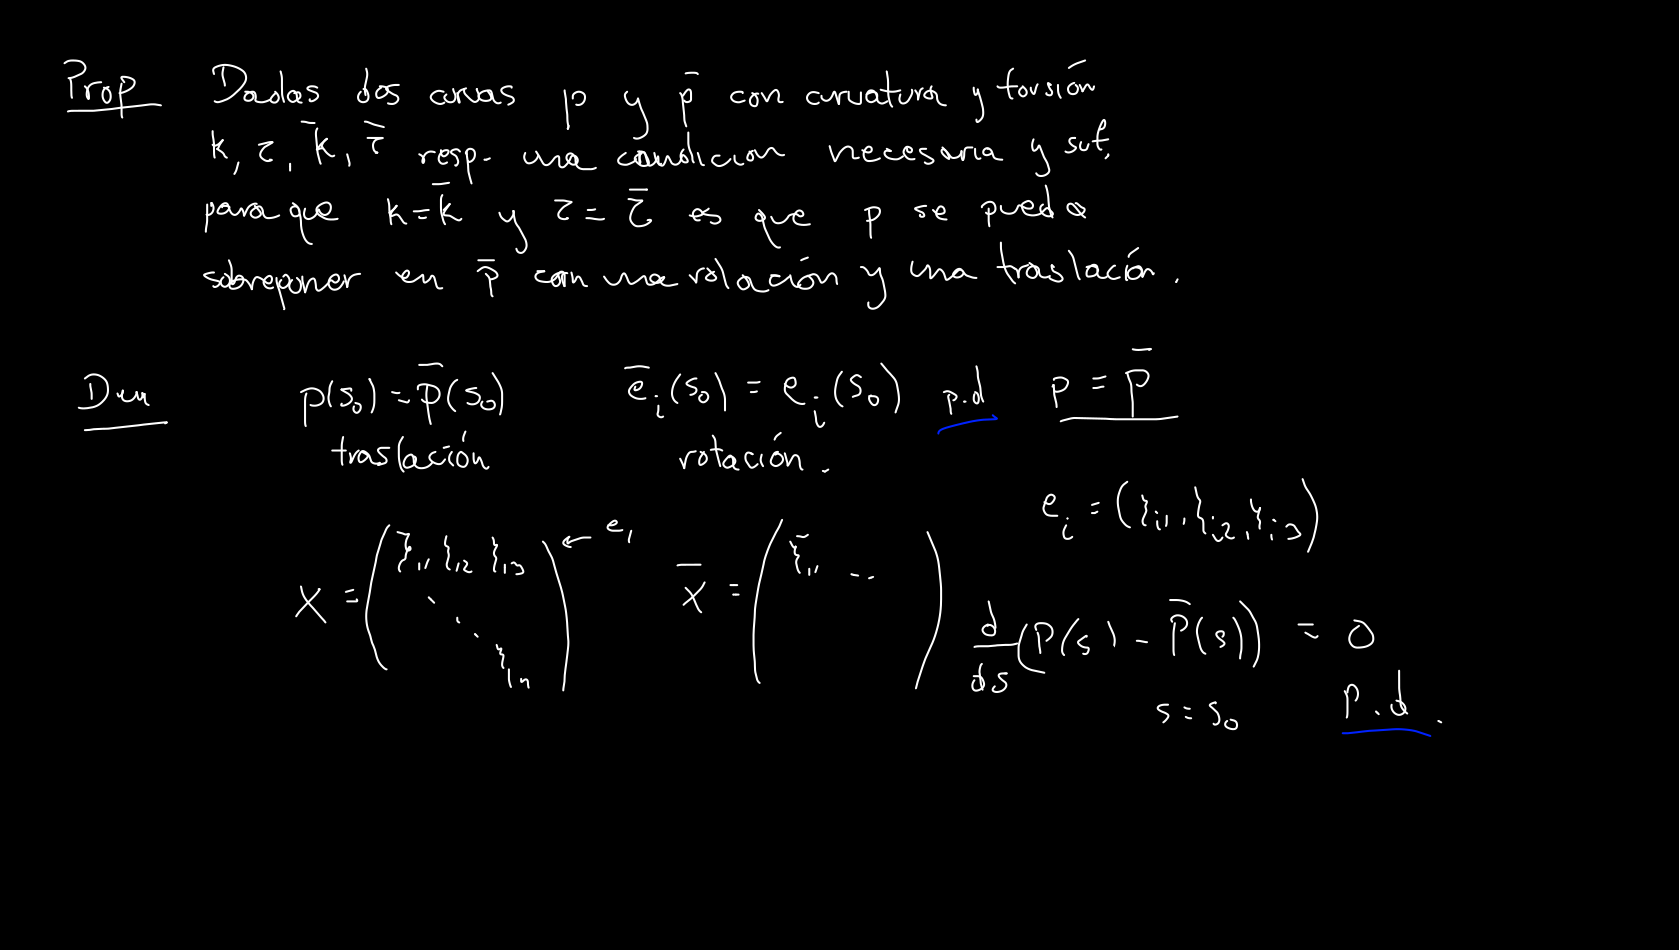 Prop Dadas dos curvas p y p̄ con curvatura y torsión
k, τ, k̄, τ̄ resp. una condicion necesaria y suf.
para que k = k̄ y τ = τ̄ es que p se pueda
sobreponer en p̄ con una rotación y una traslación.
Dem p(s₀) = p̄(s₀) ēᵢ(s₀) = eᵢ(s₀) p.d p = p̄
traslación rotación.
eᵢ = (ξᵢ₁, ξᵢ₂, ξᵢ₃)
X = ( ξ₁₁ ξ₁₂ ξ₁₃ ⋱ ) ← e₁ X̄ = ( ξ̄₁₁ ... )
d/ds (P(s) - P̄(s)) = 0
s = s₀ p.d.